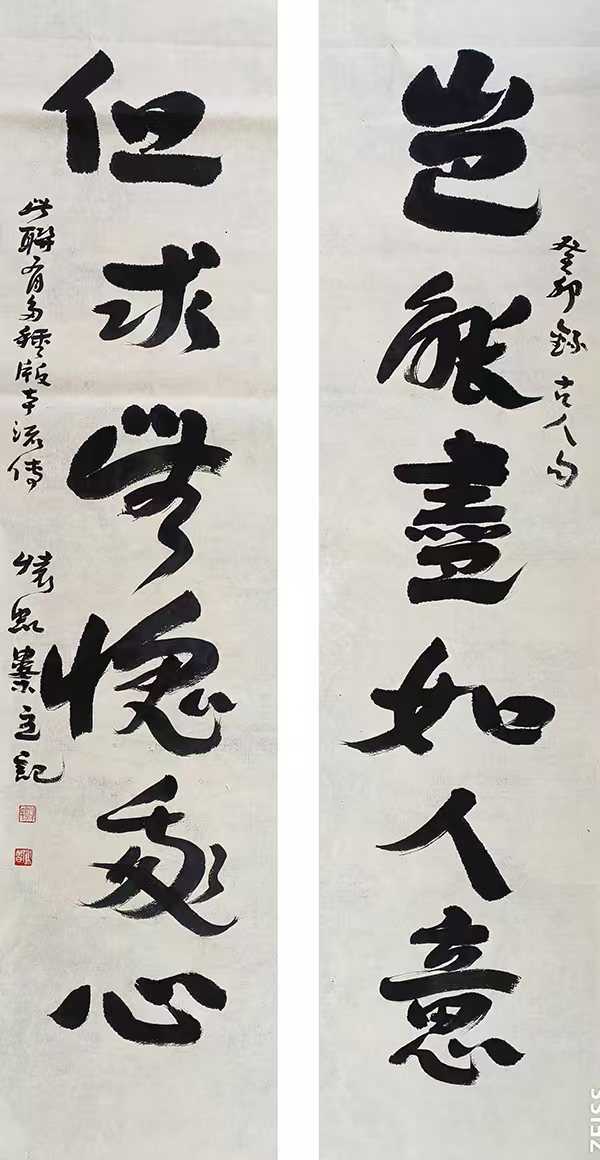 豈能盡如人意
癸卯錄古人句
但求無愧我心
此聯有多種版本流傳
記
ZEISS